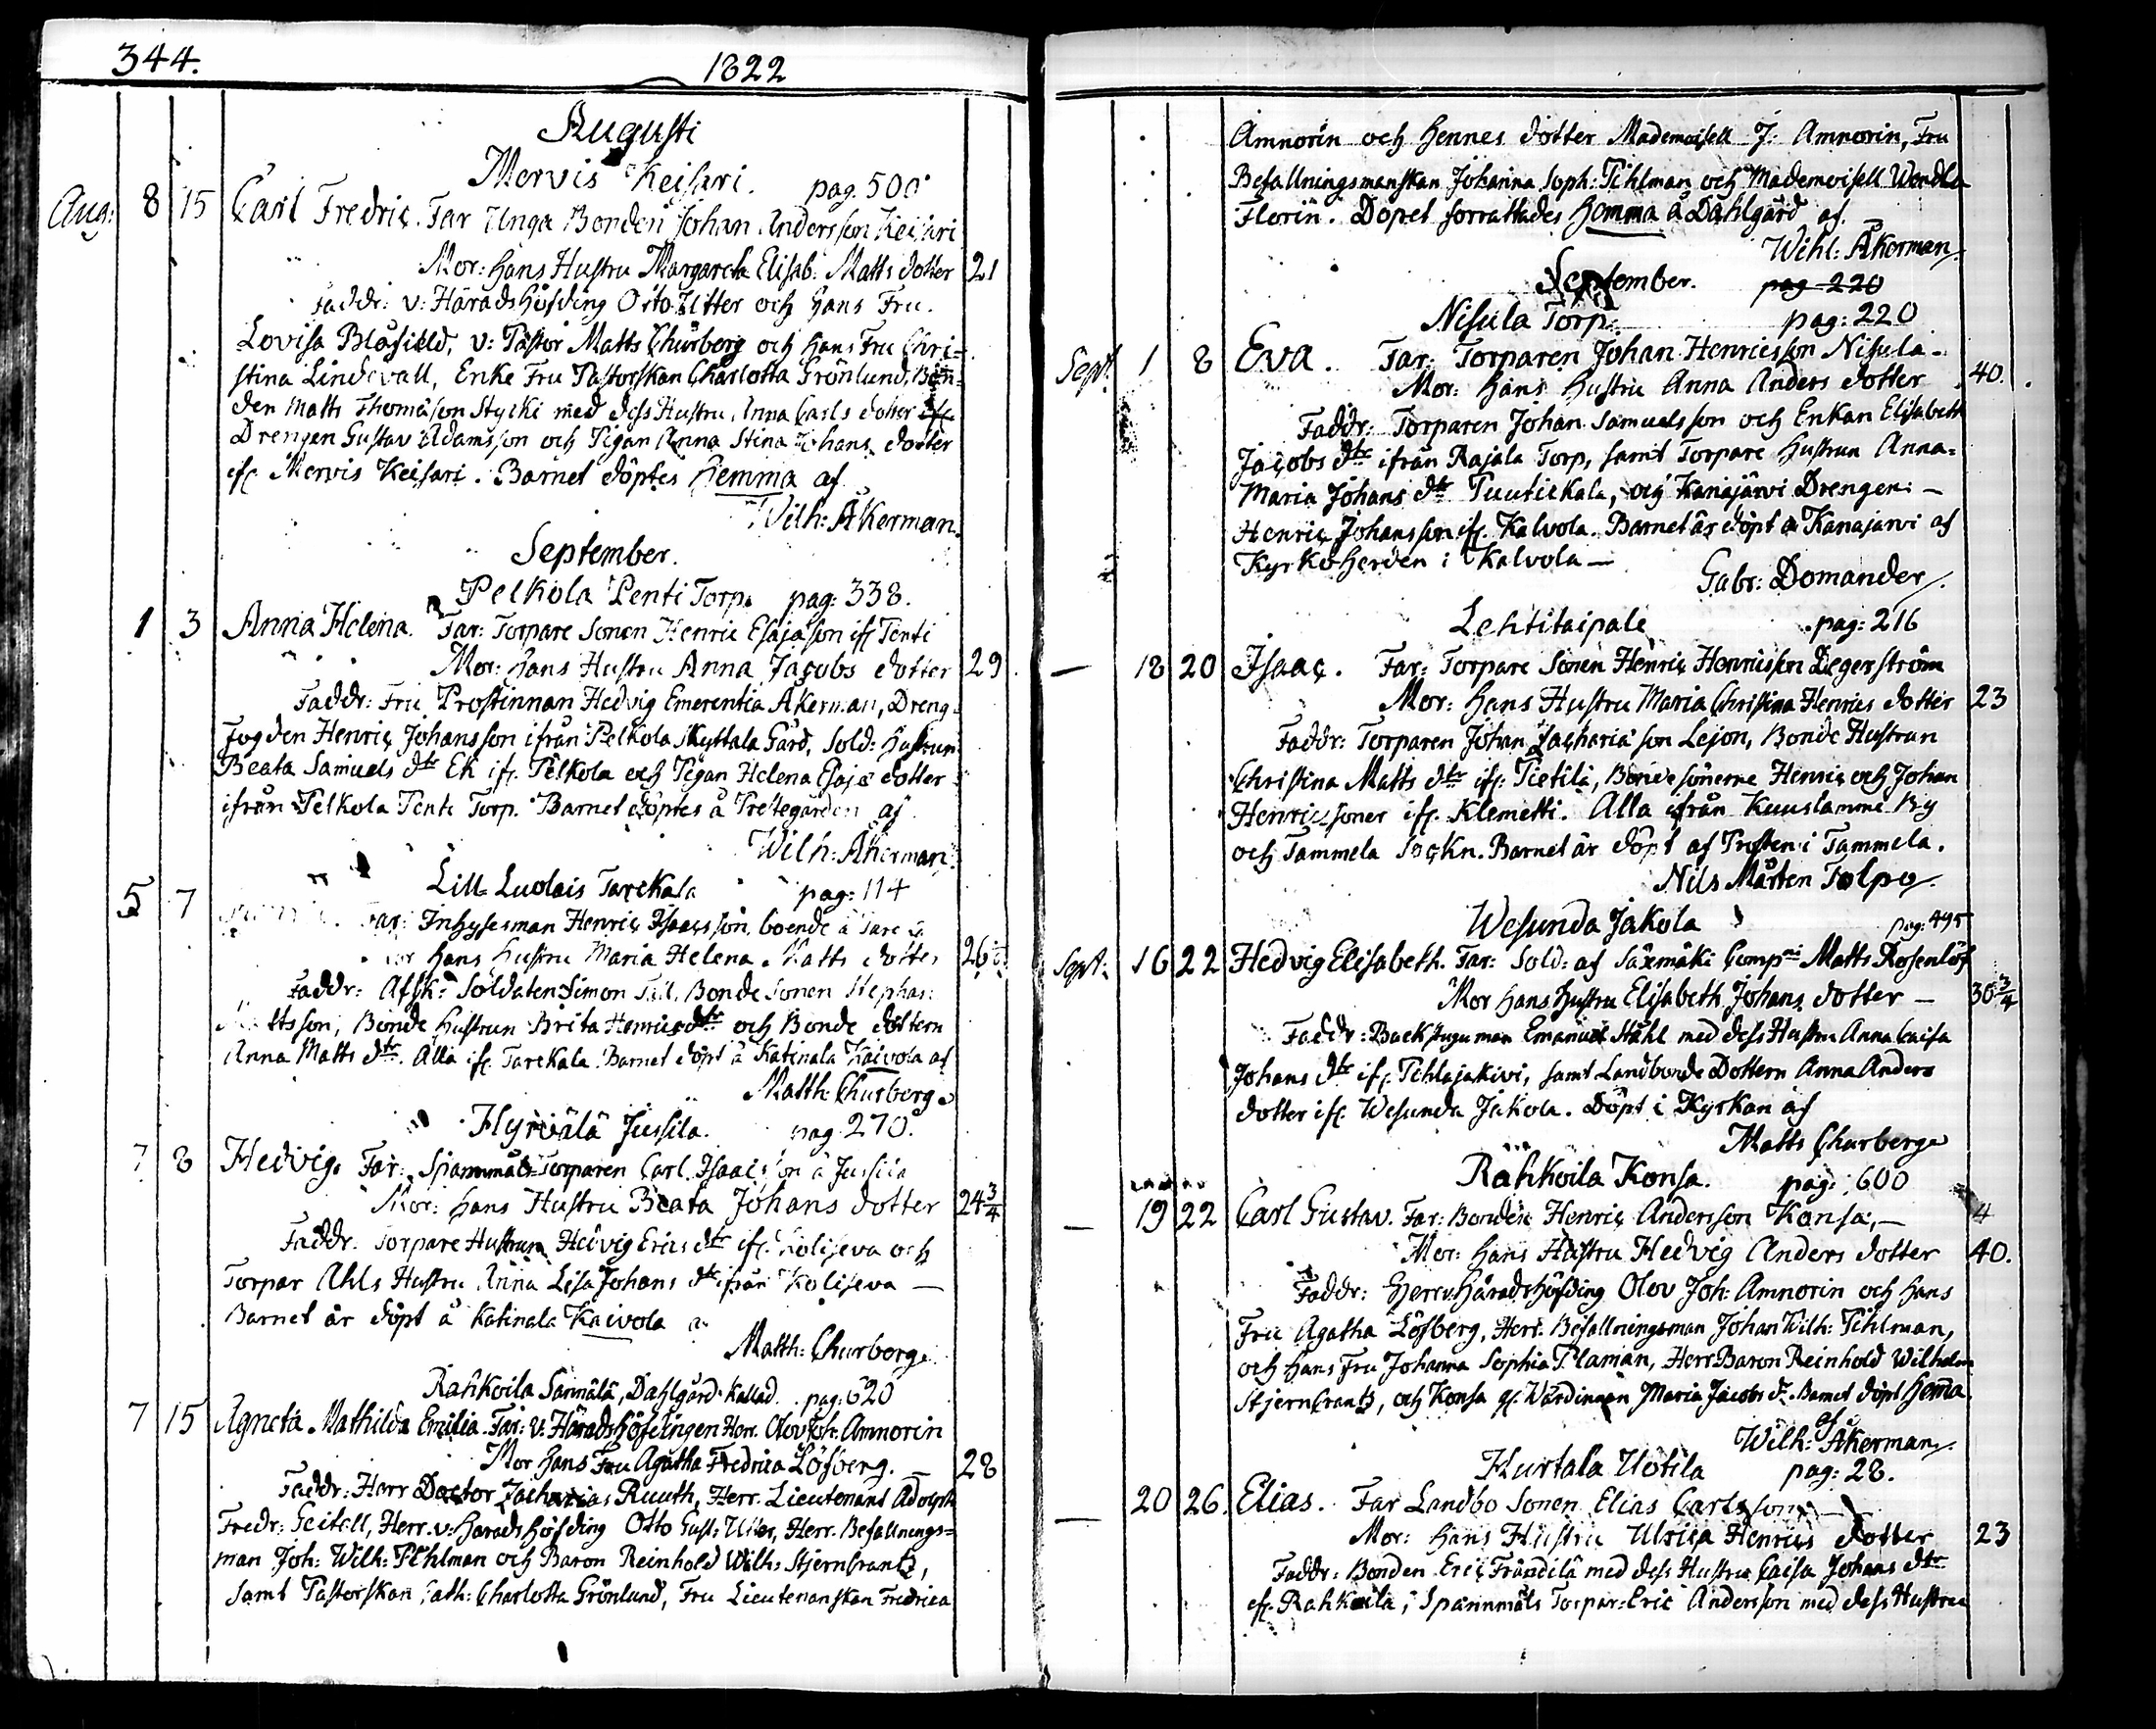 344.
1822
Augusti
Mervis Keisari. pag. 500
Aug: 8 15 Carl Fredric. Far Unga Bonden Johan Andersson Keisari
Mor: Hans Hustru Margareta Elisab: Matts dotter 21
Faddr: v: Häradshöfding Otto Utter och Hans Fru
Lovisa Blåfield, v: Pastor Matts Churberg och Hans Fru Chri=
stina Lindevall, Enke Fru Pastorskan Charlotta Grönlund, Bon=
den Matts Thomasson Stycki med dess Hustru Anna Carls dotter
Drengen Gustav Adamsson och Pigan Anna Stina Johans dotter
ifr Mervis Keisari. Barnet döptes Hemma af
Wilh: Åkerman.
September.
Pelkola Penti Torp. pag: 338.
1 3 Anna Helena. Far: Torpare Sonen Henric Esajasson ifr Penti
Mor: Hans Hustru Anna Jacobs dotter 29
Faddr: Fru Prostinnan Hedvig Emerentia Åkerman, Dreng
Fogden Henric Johansson ifrån Pelkola Skyttala Gård, Sold: Hustrun
Beata Samuels dtr Ek ifr. Pelkola och Pigan Helena Esajæ dotter
ifrån Pelkola Penti Torp. Barnet döptes å Prestegården af
Wilh: Åkerman.
Lill Luolais Tarckala pag: 114
5 7 Far: Inhysesman Henric Isaacsson, boende å
Hans Hustru Maria Helena Matts dotter 26
Faddr: Afsk: Soldaten Simon Bonde Sonen Stephan
Mattsson, Bonde Hustrun Brita Henricsdtr och Bonde dottern
Anna Matts dtr. Alla ifr. Tarckala. Barnet döpt å Katinala Kaivola af
Matth: Churberg.
Hyrvälä Jussila. pag. 270.
7 8 Hedvig. Far: Spannmåls Torparen Carl Isaacsson å Jussila
Mor: Hans Hustru Beata Johans dotter 24 3/4
Faddr. Torpare Hustrun Hedvig Erics dtr ifr. Koliseva och
Torpar Ahls Hustru Anna Lisa Johans dtr ifrån Koliseva —
Barnet är döpt å Katinala Kaivola
Matth: Churberg.
Rahkoila Sannälä, Dahlgård kallad. pag: 620
7 15 Agneta Mathilda Emilia. Far: v: Häradshöfdingen Herr. Olov Joh: Amnorin
Mor Hans Fru Agatha Fredrica Löfberg. 28
Faddr: Herr Doctor Zacharias Ruuth, Herr. Lieutenant Adolph
Fredr: Geitell, Herr. v: Häradshöfding Otto Gust: Utter, Herr. Befallnings=
man Joh: Wilh: Pihlman och Baron Reinhold Wilh: Stjerncrantz,
samt Pastorskan Cath: Charlotta Grönlund, Fru Lieutenanskan Fredrica
Amnorin och Hennes dotter Mademoisell J: Amnorin, Fru
Befallningsmanskan Johanna Soph: Pihlman och Mademoisell Wendla
Florin. Dopet forrättades Hemma å Dahlgård af.
Wihl: Åkerman
September. pag 220
Nisula Torp. pag: 220
Sept: 1 8 Eva. Far: Torparen Johan Henricsson Nisula.
Mor: Hans Hustru Anna Anders dotter 40.
Faddr: Torparen Johan Samuelsson och Enkan Elisabeth
Jacobs dtr ifrån Rajala Torp, samt Torpare Hustrun Anna=
Maria Johans dtr Tuutickala, och Kanajärvi Drengen: —
Henric Johansson ifr. Kalvola. Barnet är döpt å Kanajärvi af
Kyrkoherden i Kalvola —
Gabr: Domander
Lehtitaipale pag: 216
— 18 20 Isaac. Far: Torpare Sonen Henric Henricsson Degerström
Mor: Hans Hustru Maria Christina Henrics dotter 23
Faddr: Torparen Johan Zachariä son Lejon, Bonde Hustrun
Christina Matts dtr ifr: Pietilä, Bonde sönerne Henric och Johan
Henrics soner ifr. Klemetti. Alla ifrån Kuuslamme By
och Tammela Sockn. Barnet är döpt af Prosten i Tammela.
Nils Mårten Tolpo
Wesunda Jakola pag: 495
Sept: 16 22 Hedvig Elisabeth. Far: Sold: af Säxmäki Compni Matts Rosenlöf
Mor Hans Hustru Elisabeth Johans dotter — 30 3/4
Faddr: Backstuguman Emanuel Ståhl med dess Hustru Anna Caisa
Johans dtr ifr. Pehlajakivi, samt Landbonde Dottern Anna Anders
dotter ifr. Wesunda Jakola. Döpt i Kyrkan af
Matts Churberg
Rahkoila Konsa. pag: 600
— 19 22 Carl Gustav. Far: Bonden Henric Andersson Konsa, — 4
Mor: Hans Hustru Hedvig Anders dotter 40.
Faddr: Herr v: Häradshöfding Olov Joh: Amnorin och Hans
Fru Agatha Löfberg, Herr. Befallningsman Johan Wilh: Pihlman,
och Hans Fru Johanna Sophia Plaman, Herr Baron Reinhold Wilhelm
Stjerncrantz, och Konsa Wärdinnan Maria Jacobs dr. Barnet döpt Hemma
af
Wilh: Åkerman
Hurtala Uotila pag: 28.
— 20 26. Elias. Far Landbo Sonen Elias Carlsson
Mor: Hans Hustru Ulrica Henrics dotter 23
Faddr: Bonden Eric Frändilä med dess Hustru Caisa Johans dtr
ifr. Rahkoila, Spannmåls Torpar: Eric Andersson med dess Hustru